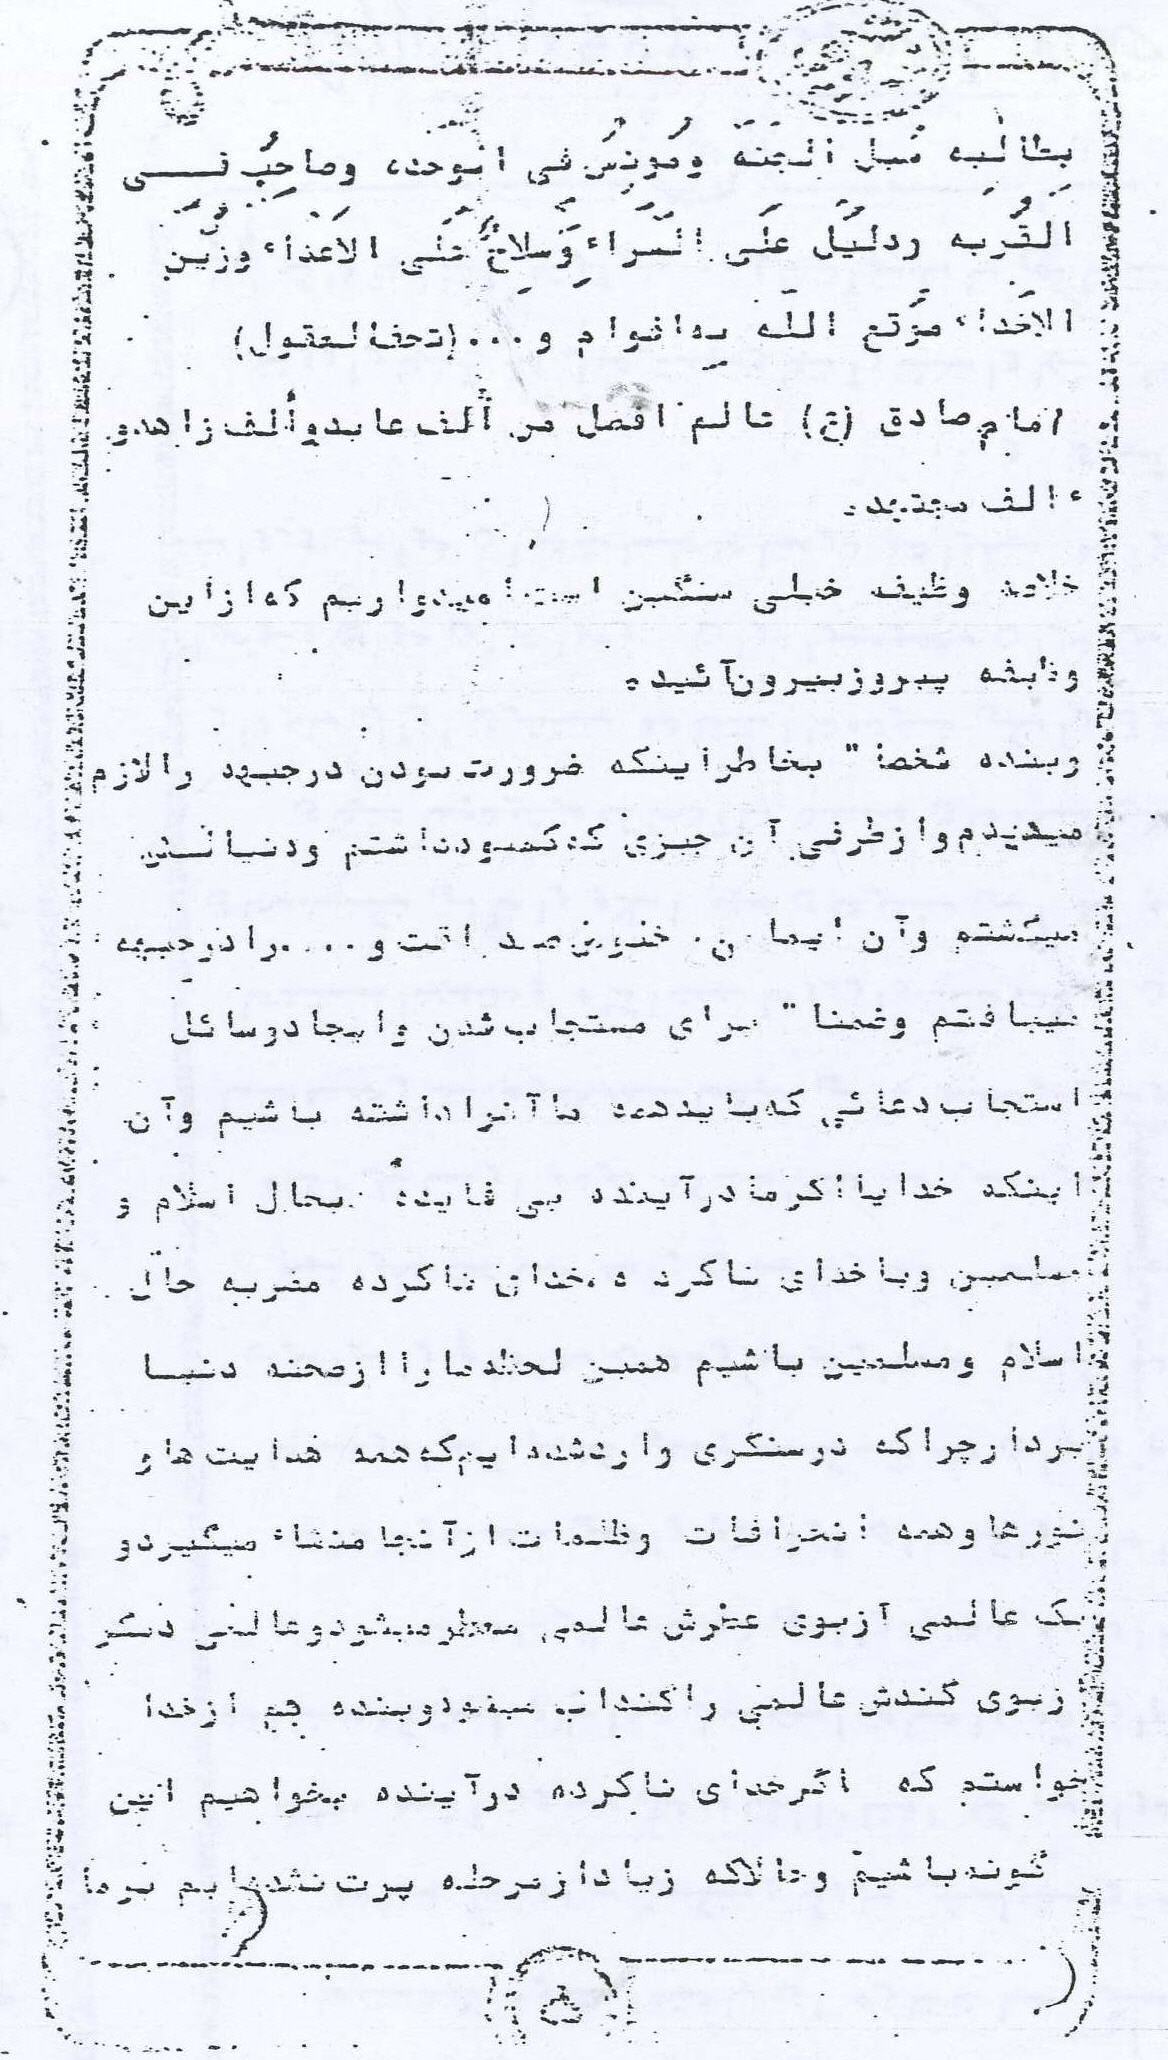 بطالبه سبل الجنه ومونس فی الوحده وصاحب فی
الغربه ودلیل علی السراء وسلاح علی الاعداء وزین
الاخلاء یرفع الله به اقوام و...(تحف العقول)
امام صادق (ع) عالم افضل من ألف عابد وألف زاهد و
الف مجتهد.
خلاصه وظیفه خیلی سنگین است امیدواریم که از این
وظیفه پیروز بیرون آئید.
وبنده شخصا" بخاطر اینکه ضرورت بودن در جبهه را لازم
میدیدم و از طرفی آن چیزی که کمبود داشتم و دنبالش
میگشتم و آن ایمان، خلوص صداقت و ....را در جبهه
مییافتم وضمنا" برای مستجاب شدن و ایجاد وسائل
استجاب دعائی که باید همه ما آنرا داشته باشیم و آن
اینکه خدایا اگر ما در آینده بی فایده بحال اسلام و
مسلمین ویا خدای ناکرده ،خدای ناکرده مضر به حال
اسلام ومسلمین باشیم همین لحظه ما را از صحنه دنیا
بردار چراکه در سنگری وارد شده ایم که همه هدایت ها و
نورها و همه انحرافات وظلمات از آنجا منشاء میگیرد و
یک عالمی از بوی عطرش عالمی معطر میشود و عالمی دیگر
از بوی گندش عالمی را گنداب میشود وبنده هم از خدا
خواستم که اگر خدای ناکرده در آینده بخواهیم این
گونه باشیم و حالا که زیاد از مرحله پرت نشده ایم بر ما
۵